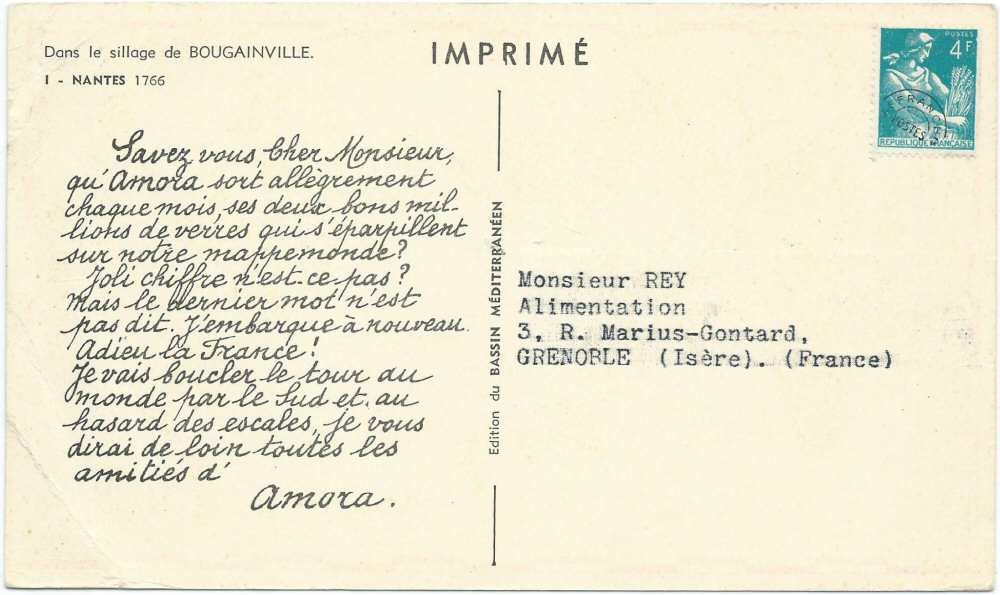 Dans le sillage de BOUGAINVILLE.
I - NANTES 1766
IMPRIMÉ
POSTES
4F
FRANCE
POSTES
REPUBLIQUE FRANÇAISE
Savez vous, Cher Monsieur,
qu'Amora sort allègrement
chaque mois, ses deux bons mil-
lions de verres qui s'éparpillent
sur notre mappemonde?
Joli chiffre n'est-ce pas?
Mais le dernier mot n'est
pas dit. J'embarque à nouveau.
Adieu la France!
Je vais boucler le tour du
monde par le Sud et, au
hasard des escales, je vous
dirai de loin toutes les
amitiés d'
Amora.
Edition du BASSIN MÉDITERRANÉEN
Monsieur REY
Alimentation
3, R. Marius-Gontard,
GRENOBLE (Isère). (France)